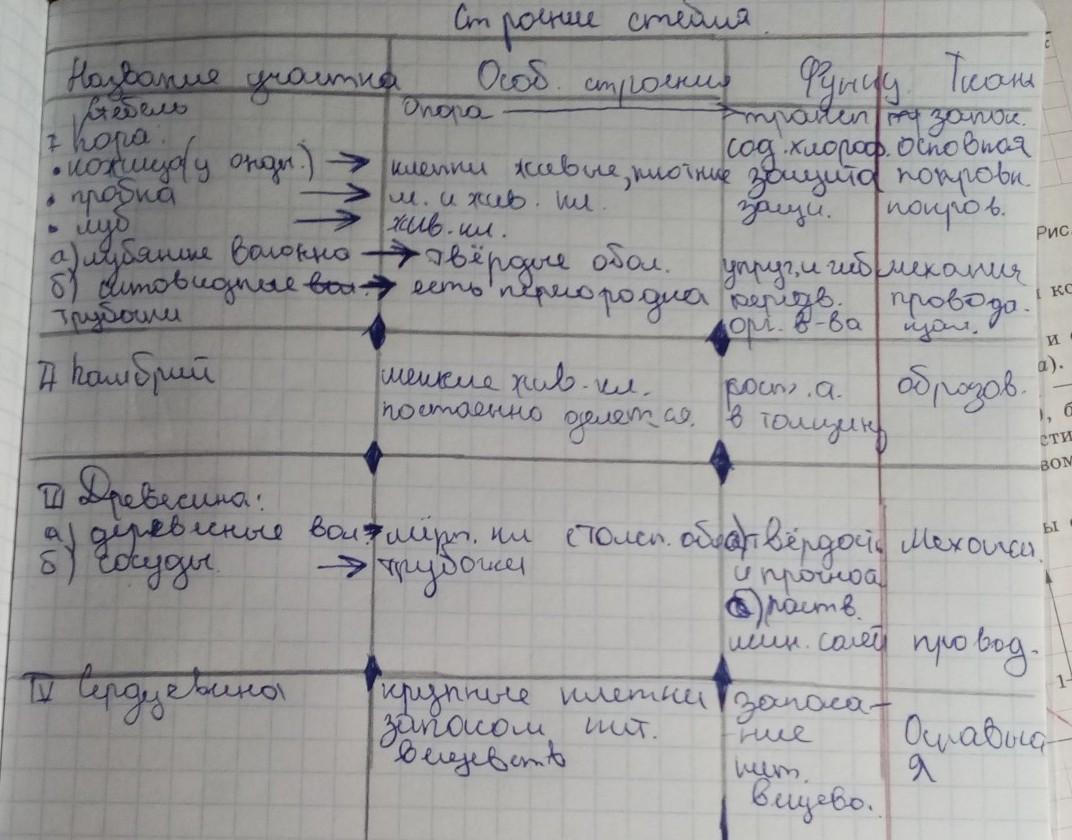 Строение стебля.
Название участка Особ. строения Функц. Ткань
Стебель Опора трансп запас.
I Кора: сод. хлороф. основная
• кожица (у одн.) → клетки живые, плотные защита покровн.
• пробка → м. и жив. кл. защи. покров.
• луб → жив. кл.
а) лубяные волокно → твёрдые обол. упруг. и гиб механич
б) ситовидные → есть перегородка передв. проводя.
трубочки орг. в-ва щая.
II Камбий мелкие жив. кл. рост. а. образов.
постоенно делется. в толщину
III Древесина:
а) деревесные вол → мёрт. кл с толст. обол а) твёрдой Механи.
б) сосуды. → трубочки и прочной
б) раств.
мин. солей провод.
IV Сердцевина крупные клетки запаса-
запасом пит. ние
веществ пит. я
вещево.